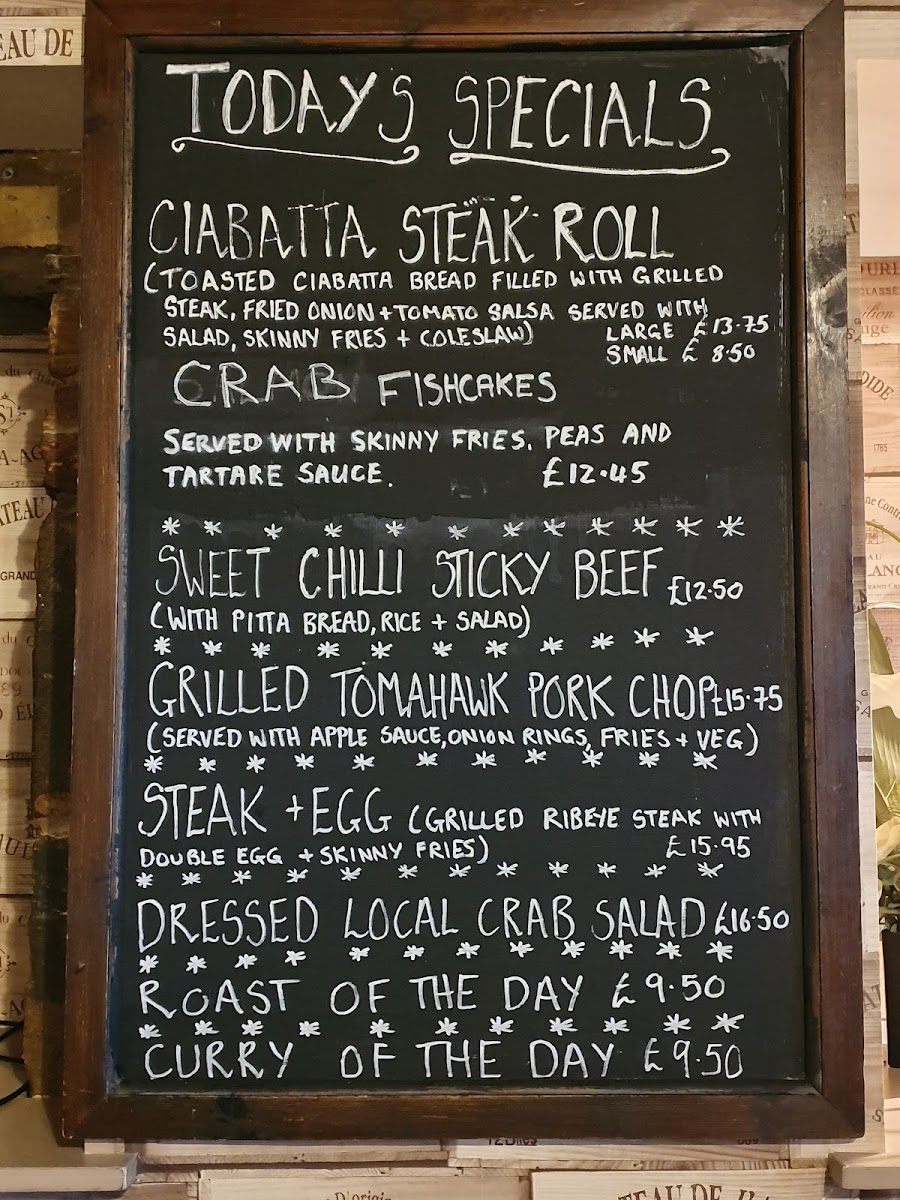 TODAYS SPECIALS
CIABATTA STEAK ROLL
(TOASTED CIABATTA BREAD FILLED WITH GRILLED
STEAK, FRIED ONION + TOMATO SALSA SERVED WITH
SALAD, SKINNY FRIES + COLESLAW)
LARGE £13.75
SMALL £ 8.50
CRAB FISHCAKES
SERVED WITH SKINNY FRIES, PEAS AND
TARTARE SAUCE. £12.45
* * * * * * * * * * * *
SWEET CHILLI STICKY BEEF £12.50
(WITH PITTA BREAD, RICE + SALAD)
* * * * * * * * * * *
GRILLED TOMAHAWK PORK CHOP £15.75
(SERVED WITH APPLE SAUCE, ONION RINGS, FRIES + VEG)
* * * * * * * * * * *
STEAK + EGG (GRILLED RIBEYE STEAK WITH
DOUBLE EGG + SKINNY FRIES) £15.95
* * * * * * * * * * *
DRESSED LOCAL CRAB SALAD £16.50
* * * * * * * * * * *
ROAST OF THE DAY £9.50
* * * * * * * * * * *
CURRY OF THE DAY £9.50
EAU DE
ATEAU
GRAND
1765
D'origin